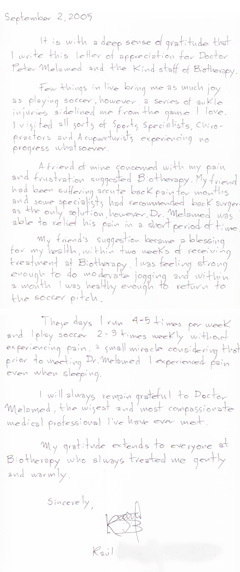 September 2, 2005
It is with a deep sense of gratitude that
I write this letter of appreciation for Doctor
Peter Melamed and the Kind staff of Biotherapy.
Few things in live bring me as much joy
as playing soccer, however a series of ankle
injuries sidelined me from the game I love.
I visited all sorts of Sports Specialists, Chiro-
practors and Acupunturists experiencing no
progress whatsoever.
A friend of mine concerned with my pain
and frustration suggested Biotherapy. My friend
had been suffering acute back pain for months
and some specialists had recommended back surgery
as the only solution however Dr. Melamed was
able to relief his pain in a short period of time
My friend's suggestion became a blessing
for my health, within two weeks of receiving
treatment at Biotherapy I was feeling strong
enough to do moderate jogging and within
a month I was healthy enough to return to
the soccer pitch.
These days I run 4-5 times per week
and I play soccer 2-3 times weekly without
experiencing pain, a small miracle considering that
prior to meeting Dr. Melamed I experienced pain
even when sleeping.
I will always remain grateful to Doctor
Melamed, the wisest and most compassionate
medical professional I've have ever met.
My gratitude extends to everyone at
Biotherapy who always treated me gently
and warmly.
Sincerely,
Raúl